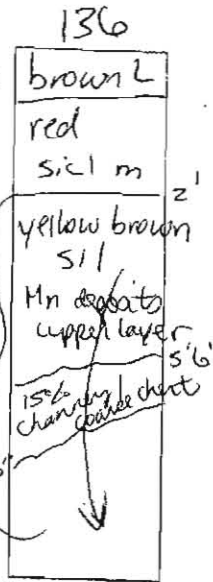 136
brown L
red
sicl m
2'
yellow brown
sil
Mn deposits
upper layer
5'6"
15%
channery
coarse chert